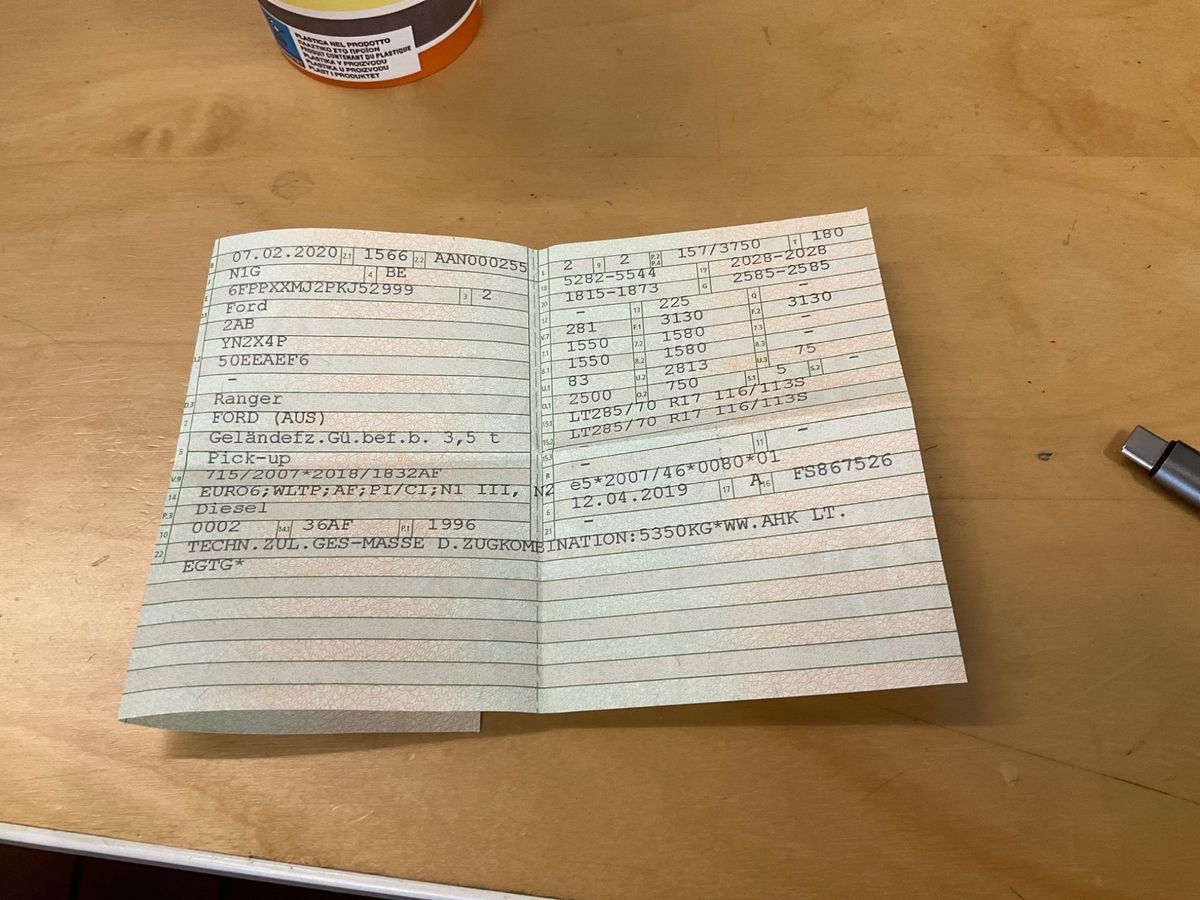 PLASTICA NEL PRODOTTO
ΠΛΑΣΤΙΚΟ ΣΤΟ ΠΡΟΪΟΝ
PRODUIT CONTENANT DU PLASTIQUE
PLASTIKA V PROIZVODU
PLASTIKA U PROIZVODU
PLAST I PRODUKTET
07.02.2020 2.1 1566 2.2 AAN000255
N1G 4 BE
6FPPXXMJ2PKJ52999 3 2
Ford
2AB
YN2X4P
50EEAEF6
–
D.3 Ranger
2 FORD (AUS)
Geländefz.Gü.bef.b. 3,5 t
5 Pick-up
V.9 715/2007*2018/1832AF
14 EURO6;WLTP;AF;PI/CI;N1 III, N2
P.3 Diesel
10 0002 14.1 36AF P.1 1996
22 TECHN.ZUL.GES-MASSE D.ZUGKOMBINATION:5350KG*WW.AHK LT.
EGTG*
L 2 9 2 P.2 P.4 157/3750 T 180
18 5282-5544 19 2028-2028
20 1815-1873 G 2585-2585
12 – 13 225 Q –
V.7 281 F.1 3130 F.2 3130
7.1 1550 7.2 1580 7.3 –
8.1 1550 8.2 1580 8.3 –
U.1 83 U.2 2813 U.3 75
O.1 2500 O.2 750 S.1 5 S.2 –
15.1 LT285/70 R17 116/113S
15.2 LT285/70 R17 116/113S
15.3 –
R – 11 –
K e5*2007/46*0080*01
6 12.04.2019 17 A 16 FS867526
21 –